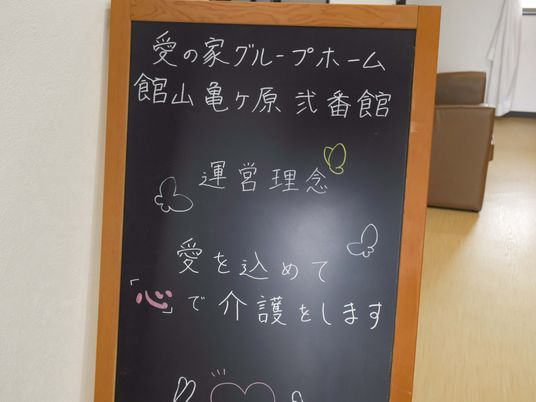 愛の家グループホーム
館山亀ヶ原 弐番館
運営理念
愛を込めて
「心」で介護をします